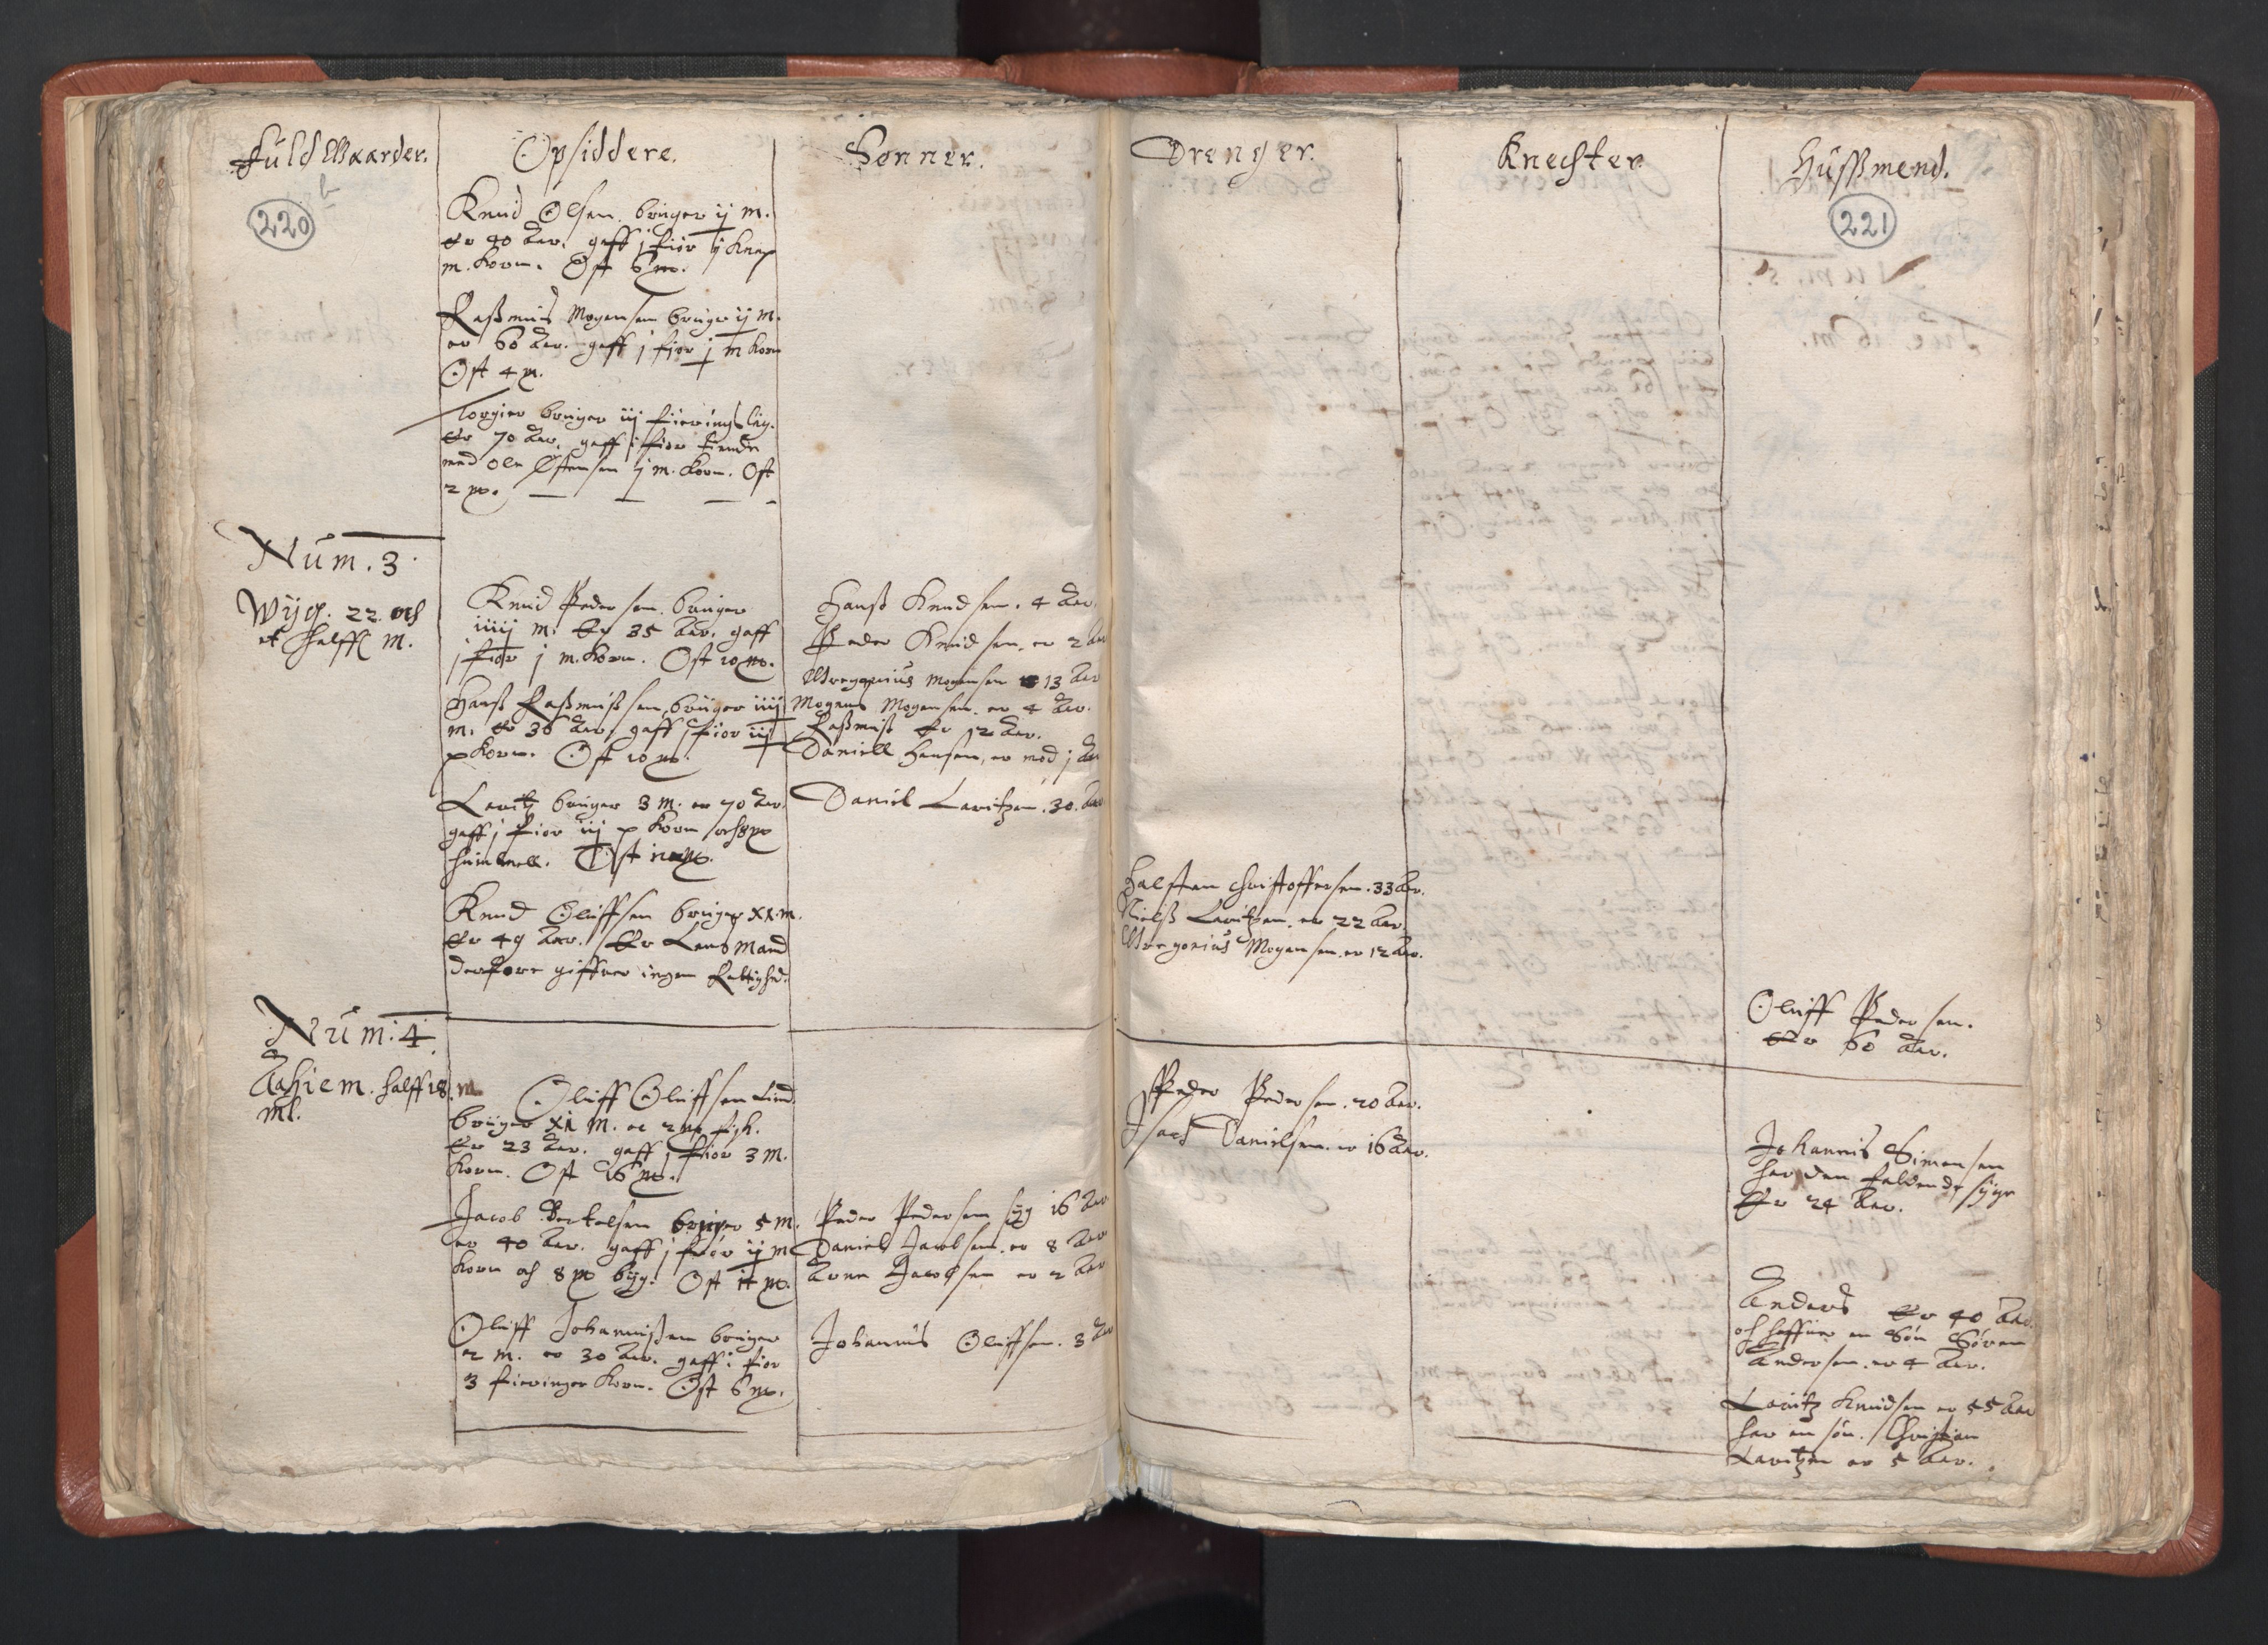 Fuld Gaarder.
220
Opsiddere.
Knud Olsen bruger ij m.
Er 40 Aar. gaff j fior ij knap
m. Korn. Ost 6 m.
Rassmus Mogensen bruger ij m.
er 60 Aar. gaff j fior j m Korn
Ost 4 m.
Torgier bruger iij fieringslag.
Er 70 Aar. gaff j fior tiende
med Ole Østensen ij m. Korn. Ost
2 m.
Sønner.
Num. 3
Wijg. 22 och
et halff m.
Knud Pedersen. bruger
iiiij m. Er 35 Aar. gaff
j fior j m. Korn. Ost 10 m.
Hanss Rassmussen, bruger iiij
m. Er 36 Aar, gaff j fior iij
p Korn. Ost 10 m.
Lauritz bruger 3 m. er 70 Aar.
gaff j fior iij p Korn och 8 m
Ost
Knud Oluffsen bruger XI m.
Er 49 Aar. Er Lensmand
derfore giffuer ingen Rettighed.
Hanss Knudsen. 4 Aar.
Peder Knudsen. er 2 Aar
Gregorius Mogensen 13 Aar
Mogens Mogensen. er 4 Aar.
Rassmuss Er 12 Aar.
Daniell Hansen, er mod j Aar
Daniel Lauritzen. 30. Aar
Num: 4.
Aahiem. halff 18. m.
ml.
Oluff Oluffsen Lind.
bruger XI m.
Er 23 Aar. gaff j fior 3 m.
Korn. Ost 16 m.
Jacob Bertelsen bruger 5 m.
er 40 Aar. gaff j fior ij m
Korn och 8 m byg. Ost 14 m.
Oluff Johannissen bruger
2 m. er 30 Aar. gaff i fior
3 fieringer Korn. Ost 6 m.
Peder Pedersen syg 16 Aar
Daniel Jacobsen. er 8 Aar
Arne Jacobsen er 2 Aar
Johannis Oluffsen. 3 Aar
Drenger.
Knechter.
Hussmend.
221
Halsten Christoffersen. 33 Aar.
Nielss Lauritzen. er 22 Aar.
Gregorius Mogensen. er 12 Aar.
Oluff Pedersen.
Er 60 Aar.
Peder Pedersen. 20 Aar.
Isach Danielsen. er 16 Aar.
Johannis Simensen
har den faldende syge
Er 24 Aar.
Anders Er 40 Aar.
och haffuer en Søn Søren
Andersen. er 4 Aar.
Lauritz Knudsen er 55 Aar
har en søn. Christian
Lauritzen er 5 Aar.